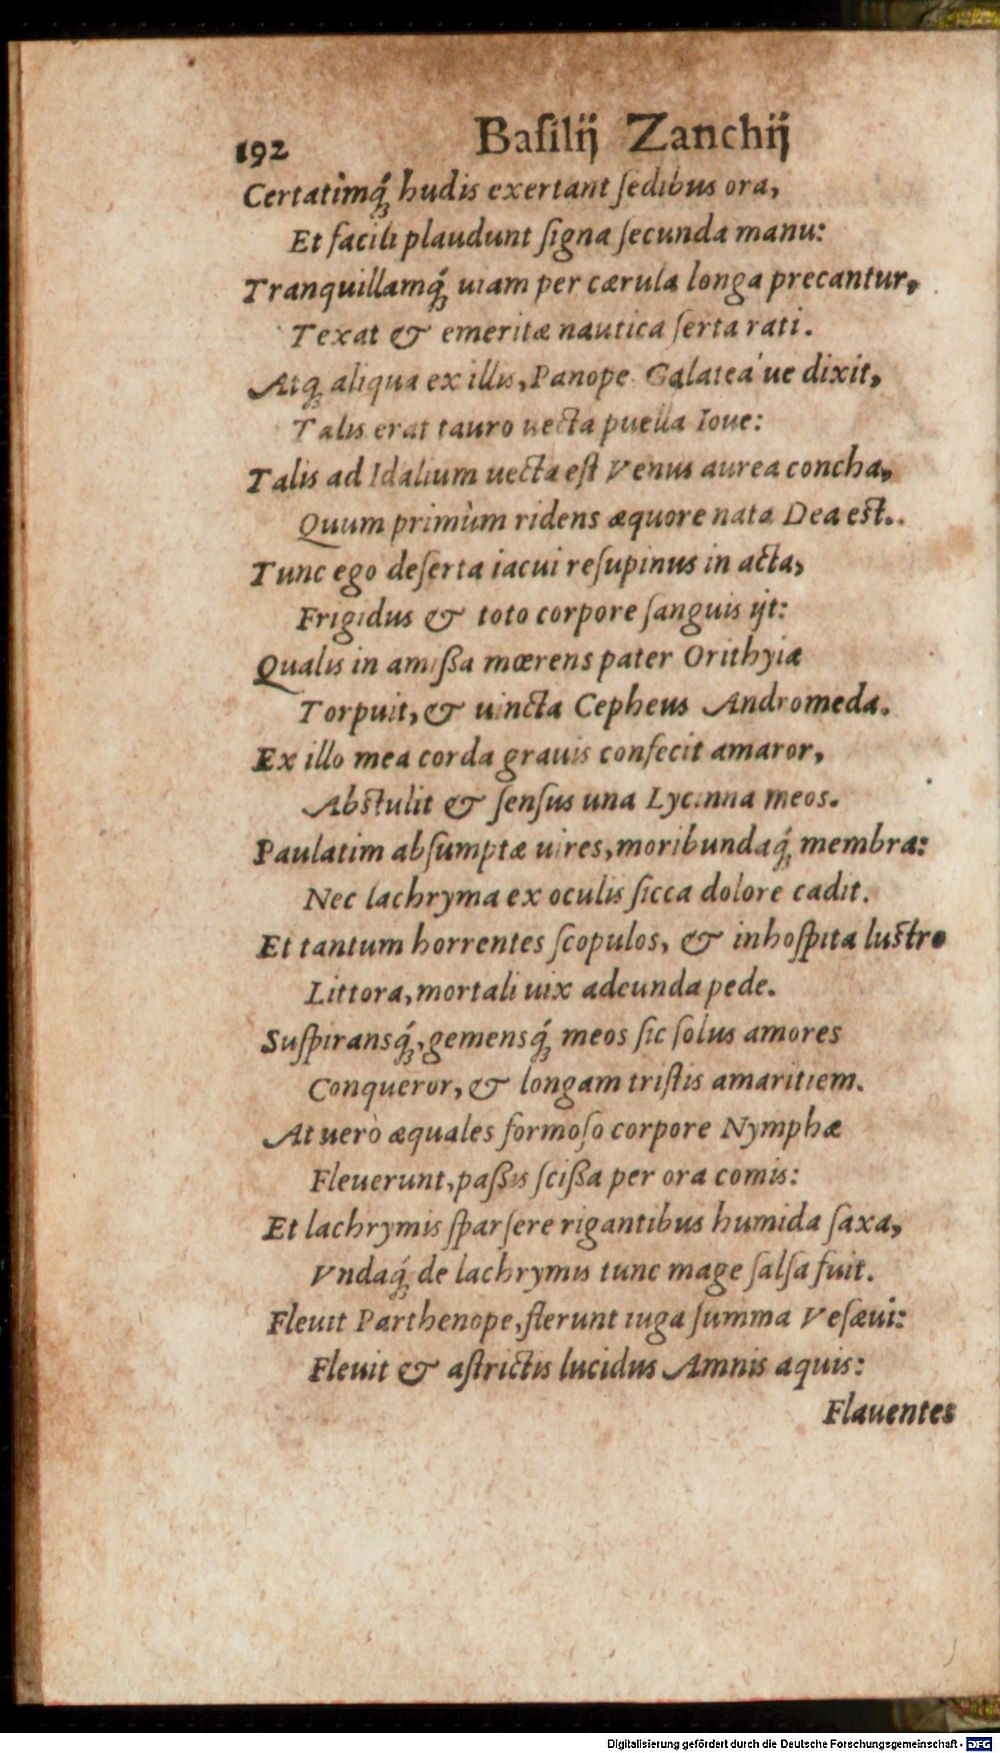 192 Baſilij Zanchij
Certatìmq́; hudis exertant ſedibus ora,
Et facili plaudunt ſigna ſecunda manu:
Tranquillamq́; uiam per cærula longa precantur,
Texat & emeritæ nautica ſerta rati.
Atq; aliqua ex illis, Panope Galatea'ue dixit,
Talis erat tauro uecta puella Ioue:
Talis ad Idalium uecta eſt Venus aurea concha,
Quum primùm ridens æquore nata Dea est.
Tunc ego deſerta iacui reſupinus in acta,
Frigidus & toto corpore ſanguis ijt:
Qualis in amiſſa mœrens pater Orithyia
Torpuit, & uincta Cepheus Andromeda.
Ex illo mea corda grauis confecit amaror,
Abstulit & ſenſus una Lycinna meos.
Paulatim abſumptæ uires, moribundaq́; membra:
Nec lachryma ex oculis ſicca dolore cadit.
Et tantum horrentes ſcopulos, & inhoſpita lustro
Littora, mortali uix adeunda pede.
Suſpiransq́;, gemensq́; meos ſic ſolus amores
Conqueror, & longam triſtis amaritiem.
At uerò æquales formoſo corpore Nymphæ
Fleuerunt, paßis ſcißa per ora comis:
Et lachrymis ſparſere rigantibus humida ſaxa,
Vndaq́; de lachrymis tunc mage ſalſa fuit.
Fleuit Parthenope, flerunt iuga ſumma Veſæui:
Fleuit & aſtrictis lucidus Amnis aquis:
Flauentes
Digitalisierung gefördert durch die Deutsche Forschungsgemeinschaft - DFG